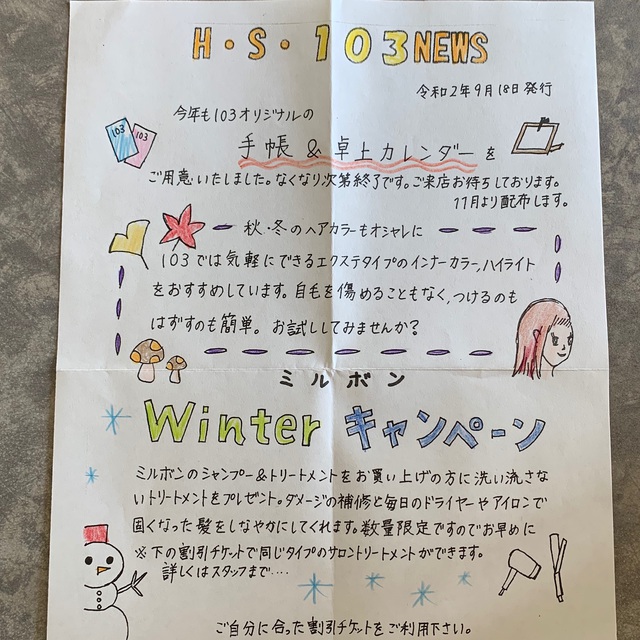 H・S・103NEWS
令和2年9月18日発行
今年も103オリジナルの
103
103
手帳 & 卓上カレンダー を
ご用意いたしました。なくなり次第終了です。ご来店お待ちしております。
11月より配布します。
秋・冬のヘアカラーもオシャレに
103では気軽にできるエクステタイプのインナーカラー,ハイライト
をおすすめしています。自毛を傷めることもなく,つけるのも
はずすのも簡単。お試ししてみませんか?
ミルボン
Winter キャンペーン
ミルボンのシャンプー&トリートメントをお買い上げの方に洗い流さな
いトリートメントをプレゼント。ダメージの補修と毎日のドライヤーやアイロンで
固くなった髪をしなやかにしてくれます。数量限定ですのでお早めに
※下の割引チケットで同じタイプのサロントリートメントができます。
詳しくはスタッフまで‥‥
ご自分に合った割引チケットをご利用下さい。